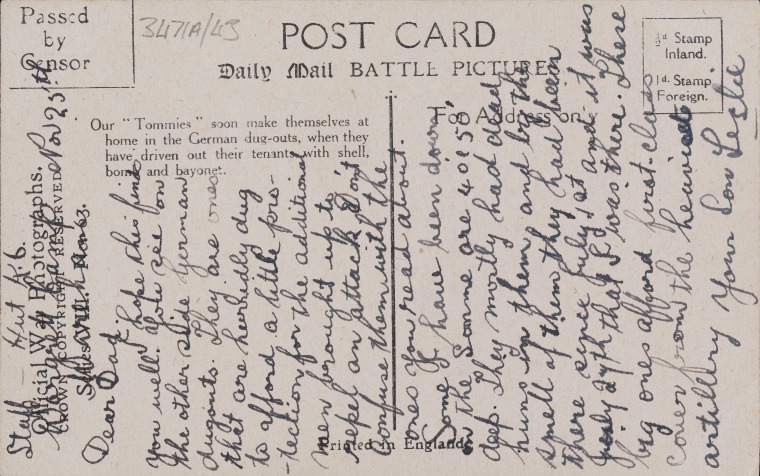 Passed
by
Censor
3471A/43
POST CARD
Daily Mail BATTLE PICTURES
½d Stamp
Inland.
1d. Stamp
Foreign.
Our "Tommies" soon make themselves at
home in the German dug-outs, when they
have driven out their tenants with shell,
bomb and bayonet.
For Address only
Official War Photographs.
CROWN COPYRIGHT RESERVED
Series
Printed in England
Staff - Hut K6.
Camp Nov 25th
Hants.
Dear Dad, hope this finds
you well. You see on
the other side German
dugouts. They are ones
that are hurriedly dug
to afford a little pro-
tection for the additional
men brought up to
repel an attack. Don't
confuse them with the
ones you read about.
Some I have been down
on the Somme are 40 & 50
deep. They mostly had dead
huns in them and by the
smell of them they had been
there since July 1st and it was
July 27th that I was there. These
big ones afford first-class
cover from the heaviest
artillery Your Son Leslie